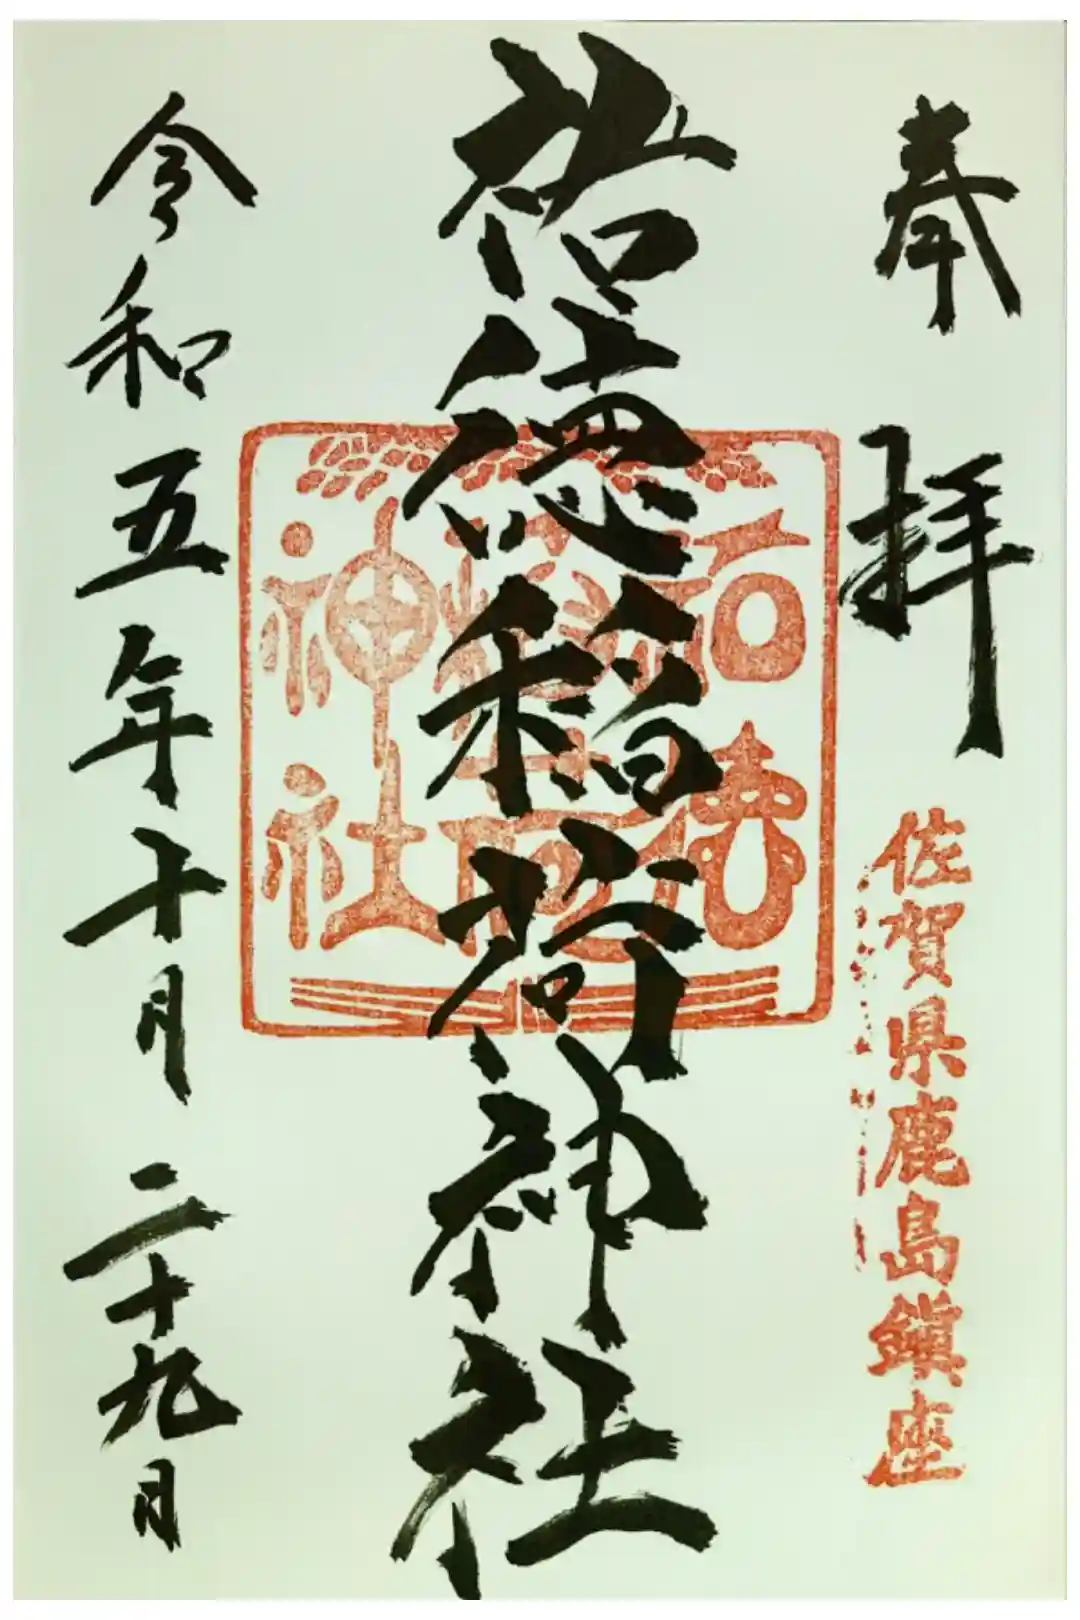 奉拝
佐賀県鹿島鎮座
祐徳稲荷神社
祐徳稲荷神社
令和五年十月二十九日